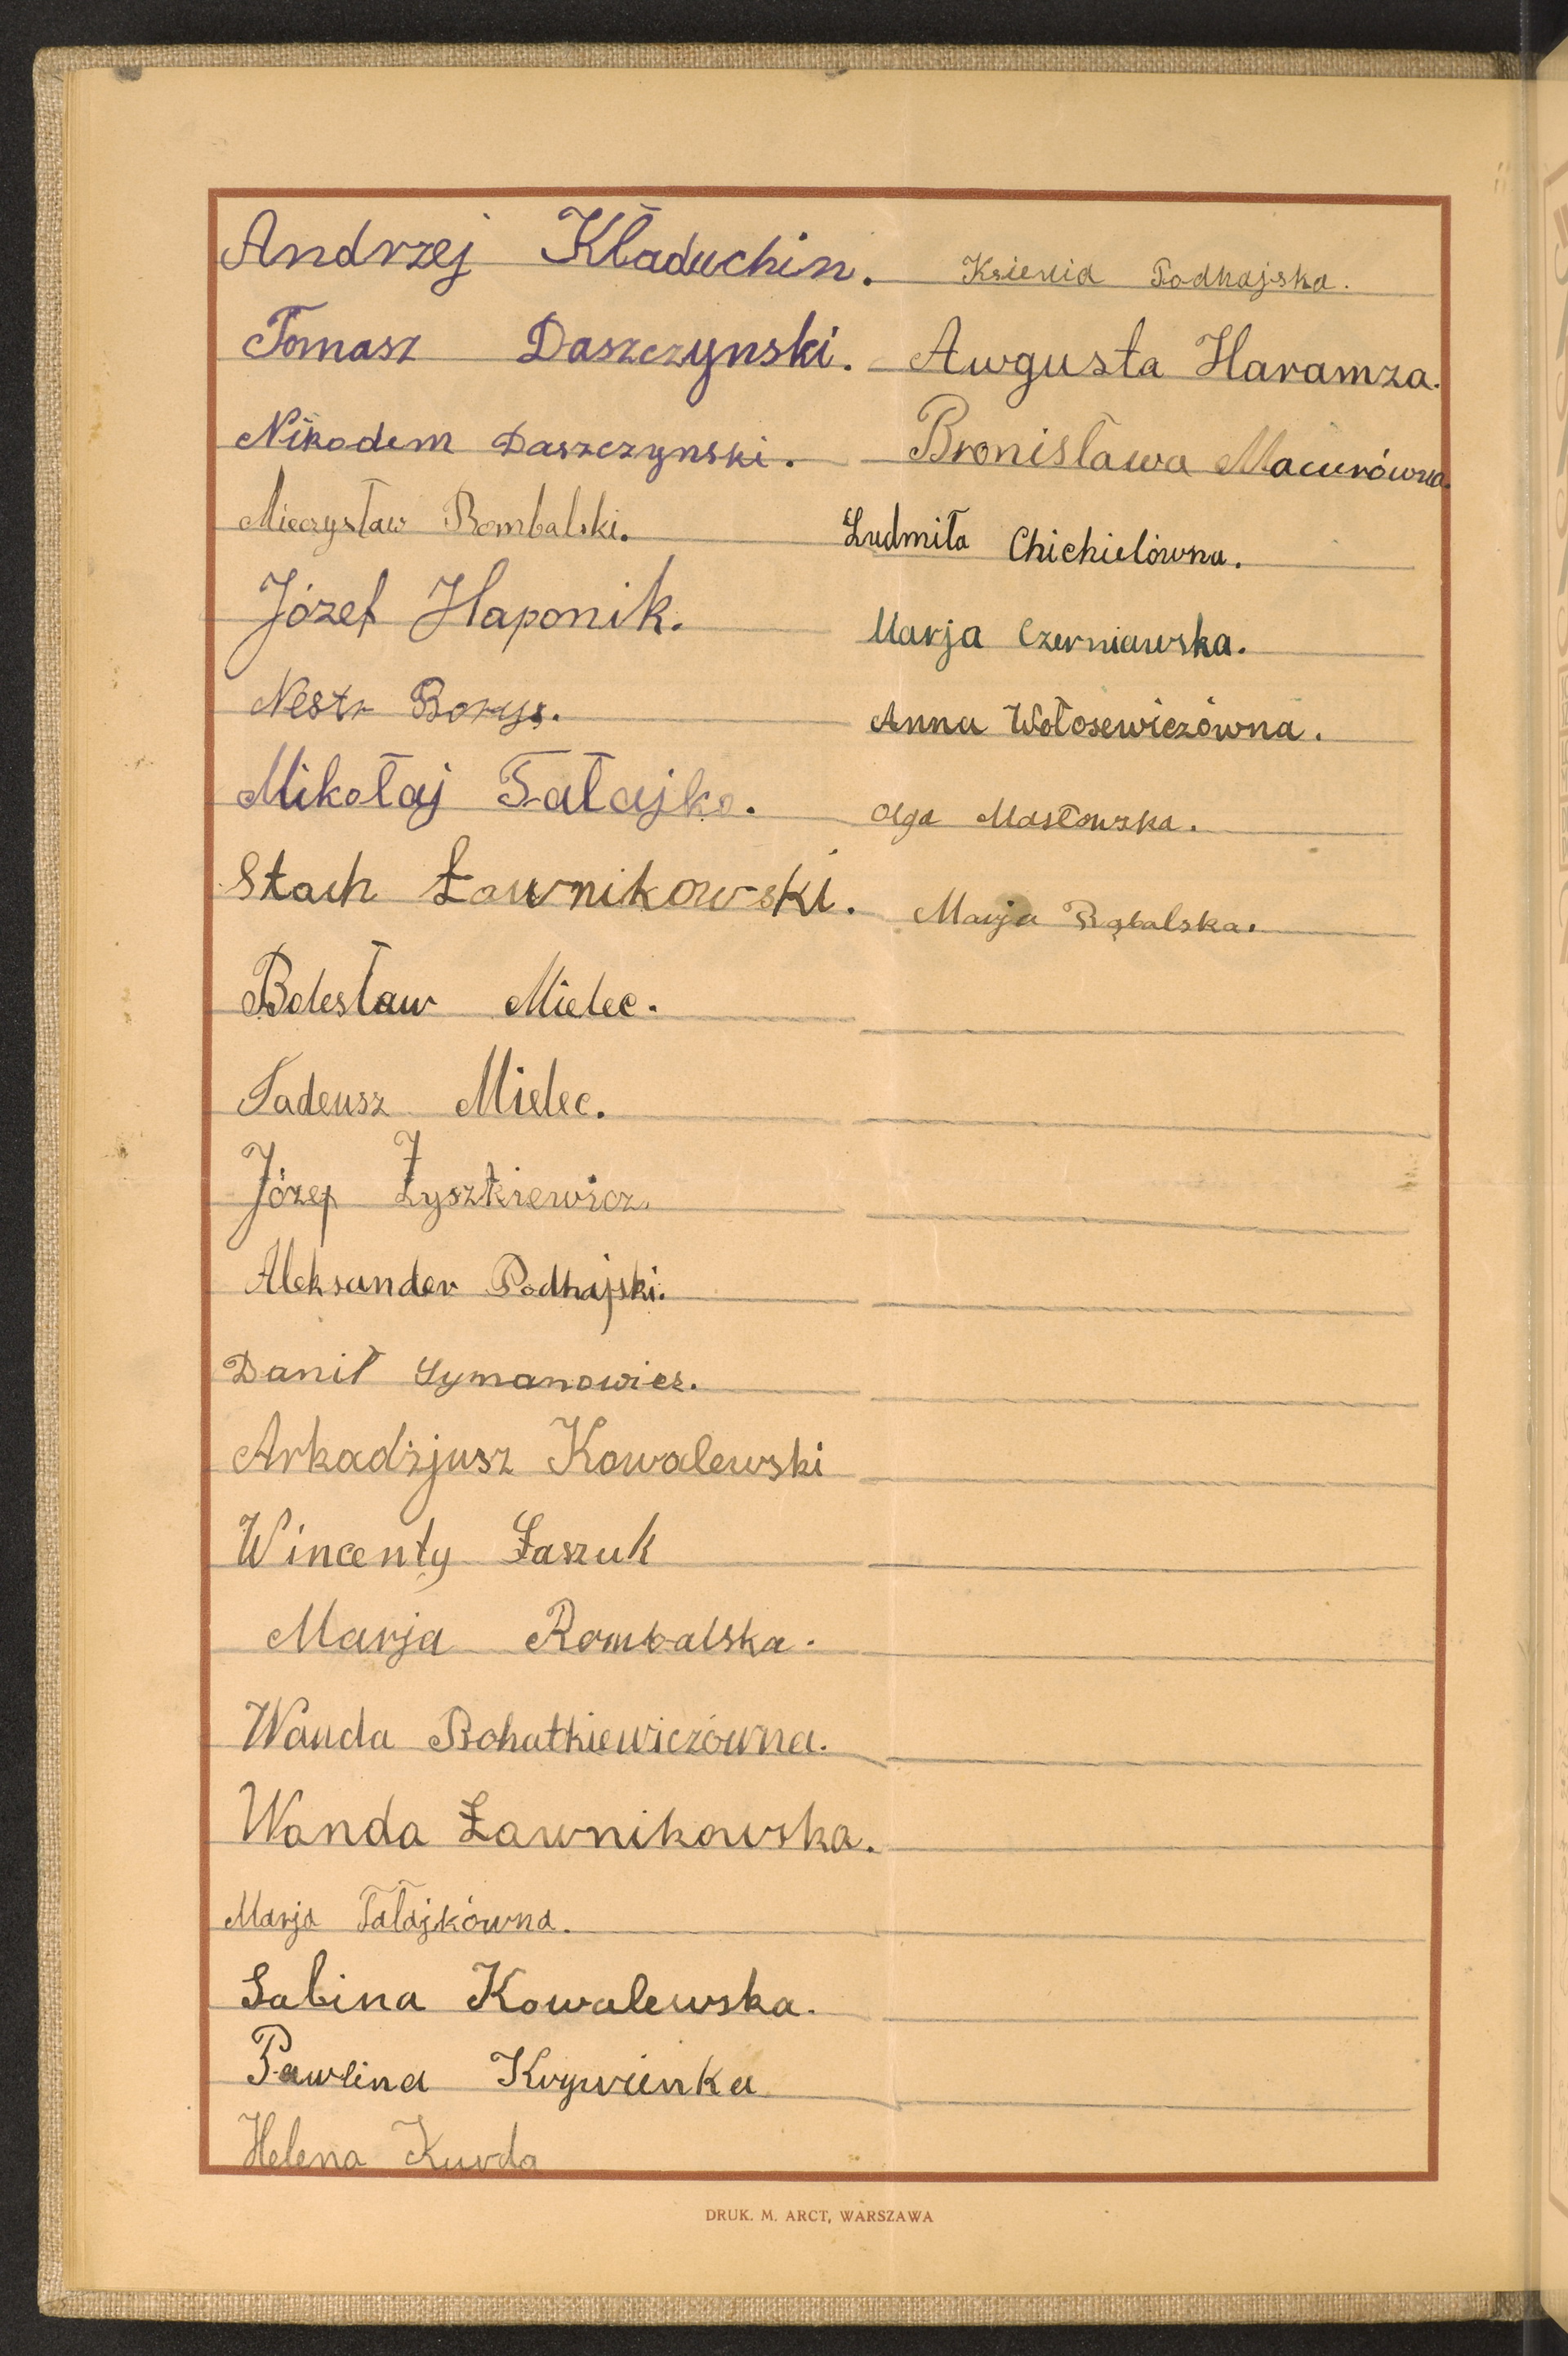 Andrzej Kładuchin.
Tomasz Daszczynski.
Nikodem Daszczynski.
Mieczysław Rombalski.
Józef Haponik.
Nestr Borys.
Mikołaj Tałajko.
Stach Ławnikowski.
Bolesław Mielec.
Tadeusz Mielec.
Józef Łyszkiewicz.
Aleksander Podhajski.
Danił Symanowicz.
Arkadjusz Kowalewski
Wincenty Łaszuk
Marja Rombalska.
Wanda Bohatkiewiczówna.
Wanda Ławnikowska.
Marja Tałajkówna.
Sabina Kowalewska.
Pawlina Krywienka
Helena Kurda
Ksienia Podhajska.
Awgusta Haramza.
Bronisława Macurówna.
Ludmiła Chichielówna.
Marja Czerniawska.
Anna Wołosewiczówna.
Olga Masłowska.
Marja Rąbalska.
DRUK. M. ARCT, WARSZAWA